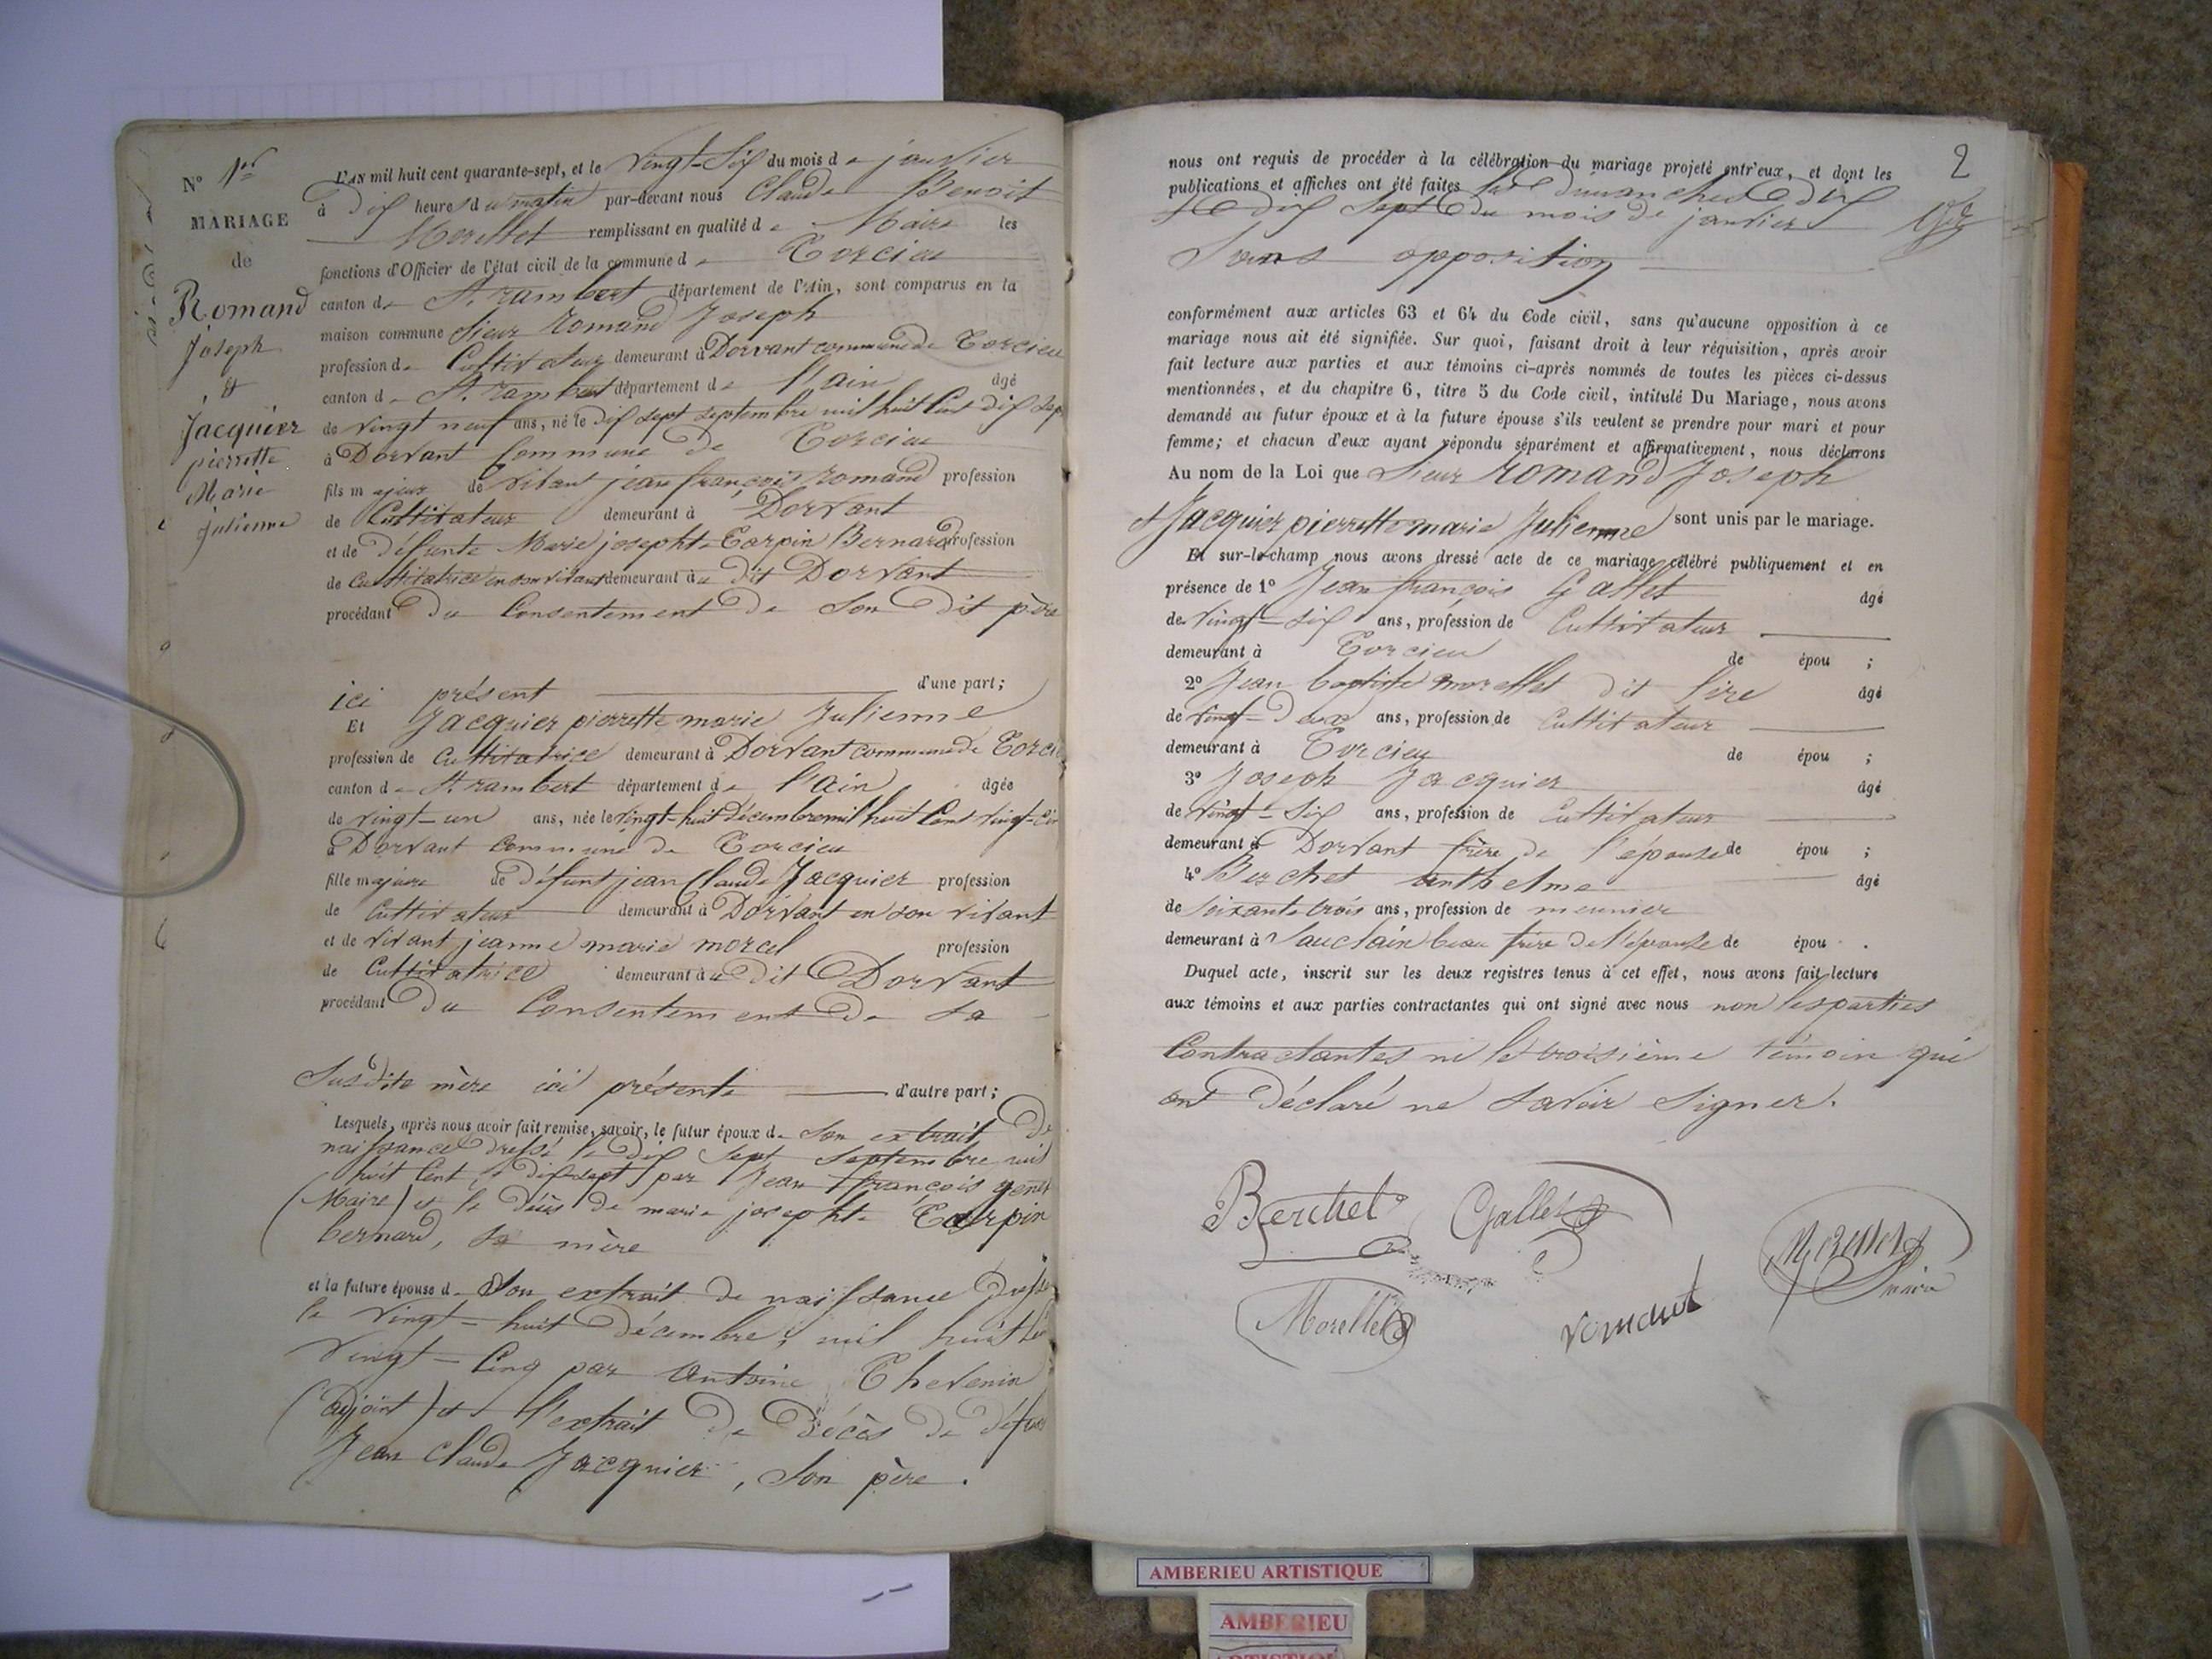 N° 1er
MARIAGE
de
Romand
Joseph
&
Jacquier
pierrette
Marie
Julienne
L'AN mil huit cent quarante-sept, et le vingt-Six du mois de janvier
à dix heures du matin par-devant nous Claude Benoit
Morellet remplissant en qualité de Maire les
fonctions d'Officier de l'état civil de la commune de Torcieu
canton de St. rambert département de l'Ain, sont comparus en la
maison commune Sieur Romand Joseph
profession de Cultivateur demeurant à Dorvant commune de Torcieu
canton de St. rambert département de l'ain âgé
de vingt neuf ans, né le dix sept septembre mil huit Cent dix sept
à Dorvant Commune de Torcieu
fils majeur de vivant jean françois romand profession
de Cultivateur demeurant à Dorvant
et de défunte Marie josephte Carpin Bernard profession
de Cultivatrice en son vivant demeurant au dit Dorvant
procédant du Consentement de Son dit père
ici présent d'une part;
Et Jacquier pierrette marie Julienne
profession de Cultivatrice demeurant à Dorvant commune de Torcieu
canton de St. rambert département de l'Ain âgée
de vingt-un ans, née le vingt-huit décembre mil huit Cent vingt-Cin
à Dorvant Commune de Torcieu
fille majeure de défunt jean Claude Jacquier profession
de Cultivateur demeurant à Dorvant en son vivant
et de vivant jeanne marie morcel profession
de Cultivatrice demeurant au dit Dorvant
procédant du Consentement de sa
Susdite mère ici présente d'autre part;
Lesquels, après nous avoir fait remise, savoir, le futur époux de Son extrait de
naissance dressé le dix Sept Septembre mil
huit Cent dix sept par Jean françois
(Maire) et le décès de marie josephte Carpin
bernard, sa mère
et la future épouse de Son extrait de naissance dressé
le vingt-huit Décembre mil huit Cent
vingt-Cinq par Antoine Thevenin
(adjoint) et l'extrait de décès de défunt
Jean Claude Jacquier, Son père.
2
nous ont requis de procéder à la célébration du mariage projeté entr'eux, et dont les
publications et affiches ont été faites les dimanches dix
et dix Sept du mois de janvier
Sans opposition
conformément aux articles 63 et 64 du Code civil, sans qu'aucune opposition à ce
mariage nous ait été signifiée. Sur quoi, faisant droit à leur réquisition, après avoir
fait lecture aux parties et aux témoins ci-après nommés de toutes les pièces ci-dessus
mentionnées, et du chapitre 6, titre 5 du Code civil, intitulé Du Mariage, nous avons
demandé au futur époux et à la future épouse s'ils veulent se prendre pour mari et pour
femme; et chacun d'eux ayant répondu séparément et affirmativement, nous déclarons
Au nom de la Loi que Sieur Romand Joseph
et Jacquier pierrette marie Julienne sont unis par le mariage.
Et sur-le-champ nous avons dressé acte de ce mariage célébré publiquement et en
présence de 1° Jean françois Gallet âgé
de vingt-six ans, profession de Cultivateur
demeurant à Torcieu de épou ;
2° Jean baptiste morellet dit Sire âgé
de vingt-deux ans, profession de Cultivateur
demeurant à Torcieu de épou ;
3° Joseph Jacquier âgé
de vingt-Six ans, profession de Cultivateur
demeurant à Dorvant frère de l'épouse de épou ;
4° Berchet anthelme âgé
de soixante trois ans, profession de meunier
demeurant à beau frère de l'épouse de épou .
Duquel acte, inscrit sur les deux registres tenus à cet effet, nous avons fait lecture
aux témoins et aux parties contractantes qui ont signé avec nous non les parties
Contractantes ni le troisième témoin qui
ont déclaré ne savoir Signer.
Berchet Gallet
Morellet
Morellet romant
Maire
AMBERIEU ARTISTIQUE
AMBERIEU
ARTISTIQUE